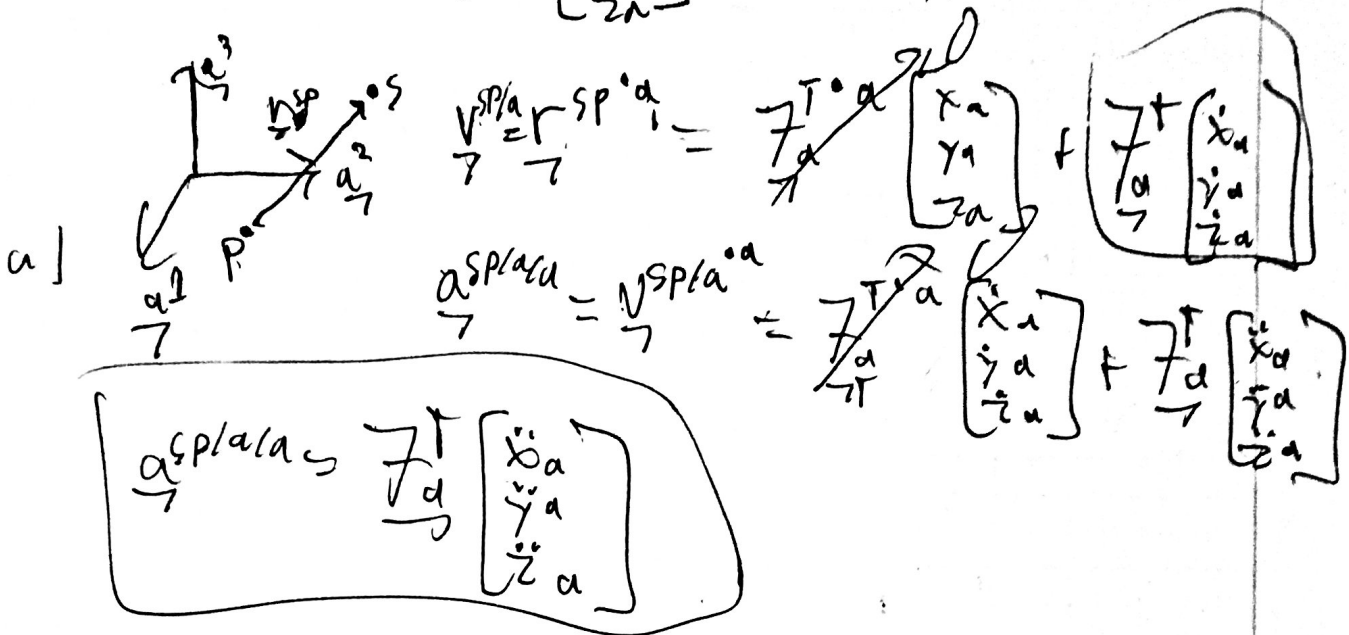 [ z_a ]
a^3
r^{sp} s
a^2
p
a^1
a]
v^{sp/a} = r^{sp^{·a}} = F_a^{T·a} [ x_a y_a z_a ] 0 + F_a^T [ ẋ_a ẏ_a ż_a ]
a^{sp/a/a} = v^{sp/a^{·a}} = F_a^{T·a} [ ẋ_a ẏ_a ż_a ] + F_a^T [ ẍ_a ÿ_a z̈_a ]
a^{sp/a/a} = F_a^T [ ẍ_a ÿ_a z̈_a ]